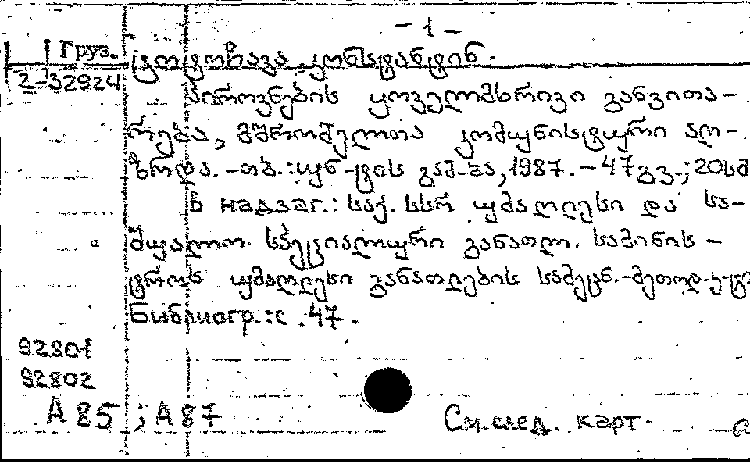 - 1 -
Груз.
2-32924
კონსტანტინ.
პიროვნების ყოველმხრივი განვითა-
რება, მშრომელთა კომუნისტური აღ-
ზრდა. - თბ.: უნ-ტის გამ-ბა, 1987. - 47 გვ.; 20სმ
В надзаг.: საქ. სსრ უმაღლესი და სა-
შუალო სპეციალური განათლ. სამინის-
ტროს უმაღლესი განათლების სამეცნ.-მეთოდ.
Библиогр.: с. 47.
92801
92802
А 85 ; А 87
См. след. карт.